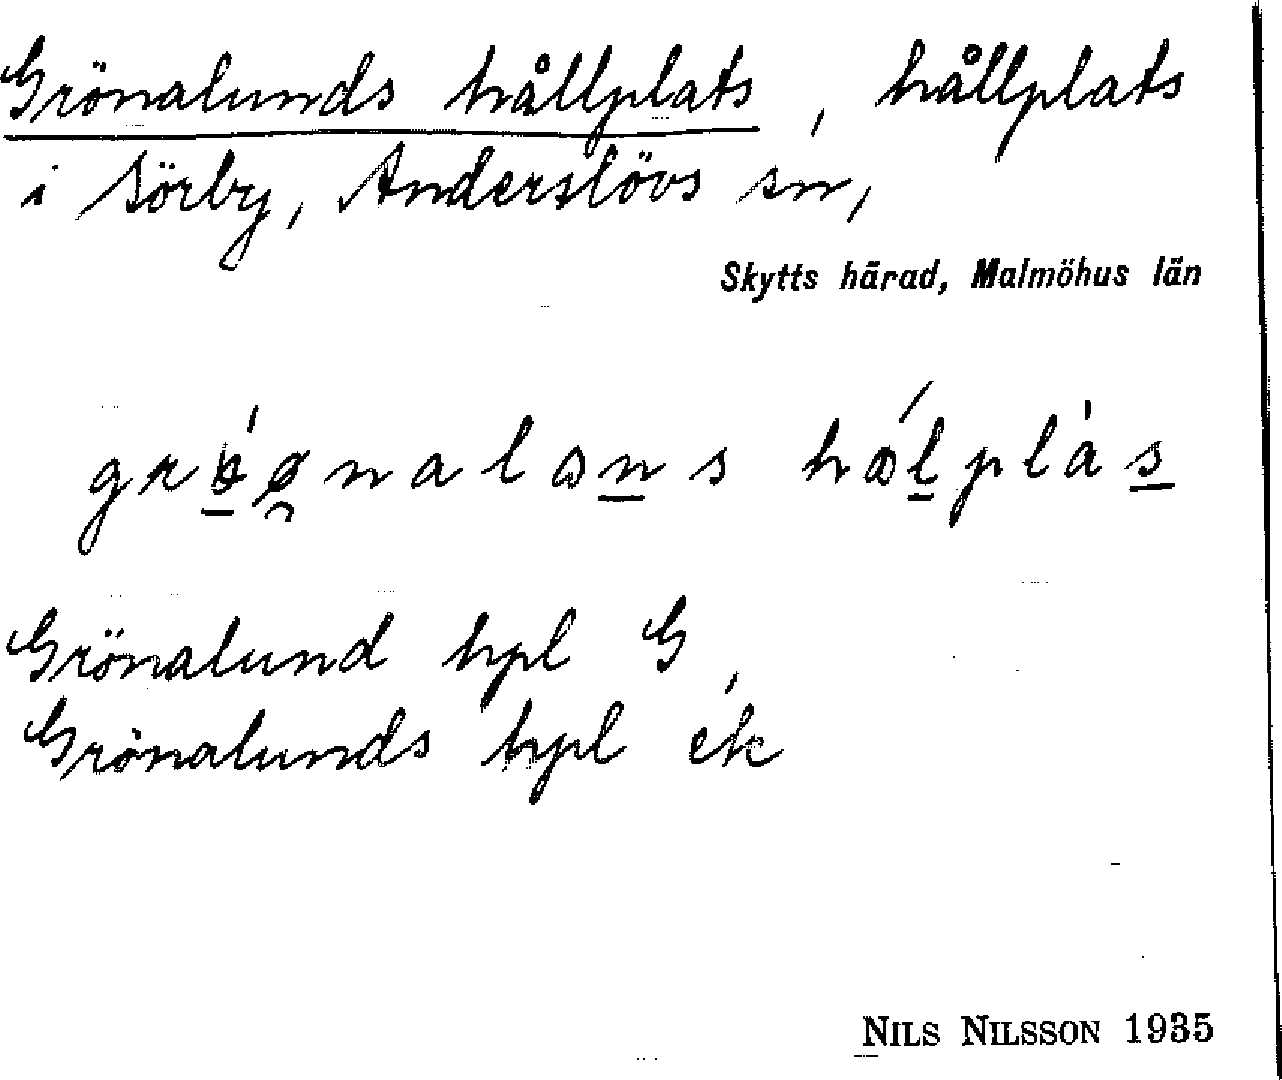 Grönalunds hållplats, hållplats
i Sörby, Anderslövs sn,
Skytts härad, Malmöhus län
Grönalund hpl G,
Grönalunds hpl ek
NILS NILSSON 1935